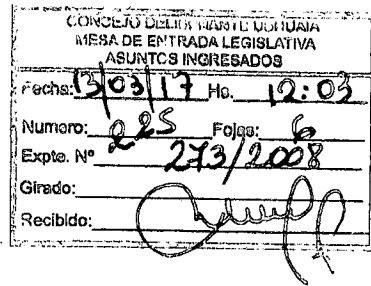 CONCEJO DELIBERANTE USHUAIA
MESA DE ENTRADA LEGISLATIVA
ASUNTOS INGRESADOS
Fecha: 13/03/17 Hs. 12:03
Numero: 225 Fojas: 6
Expte. Nº 273/2008
Girado:
Recibido: